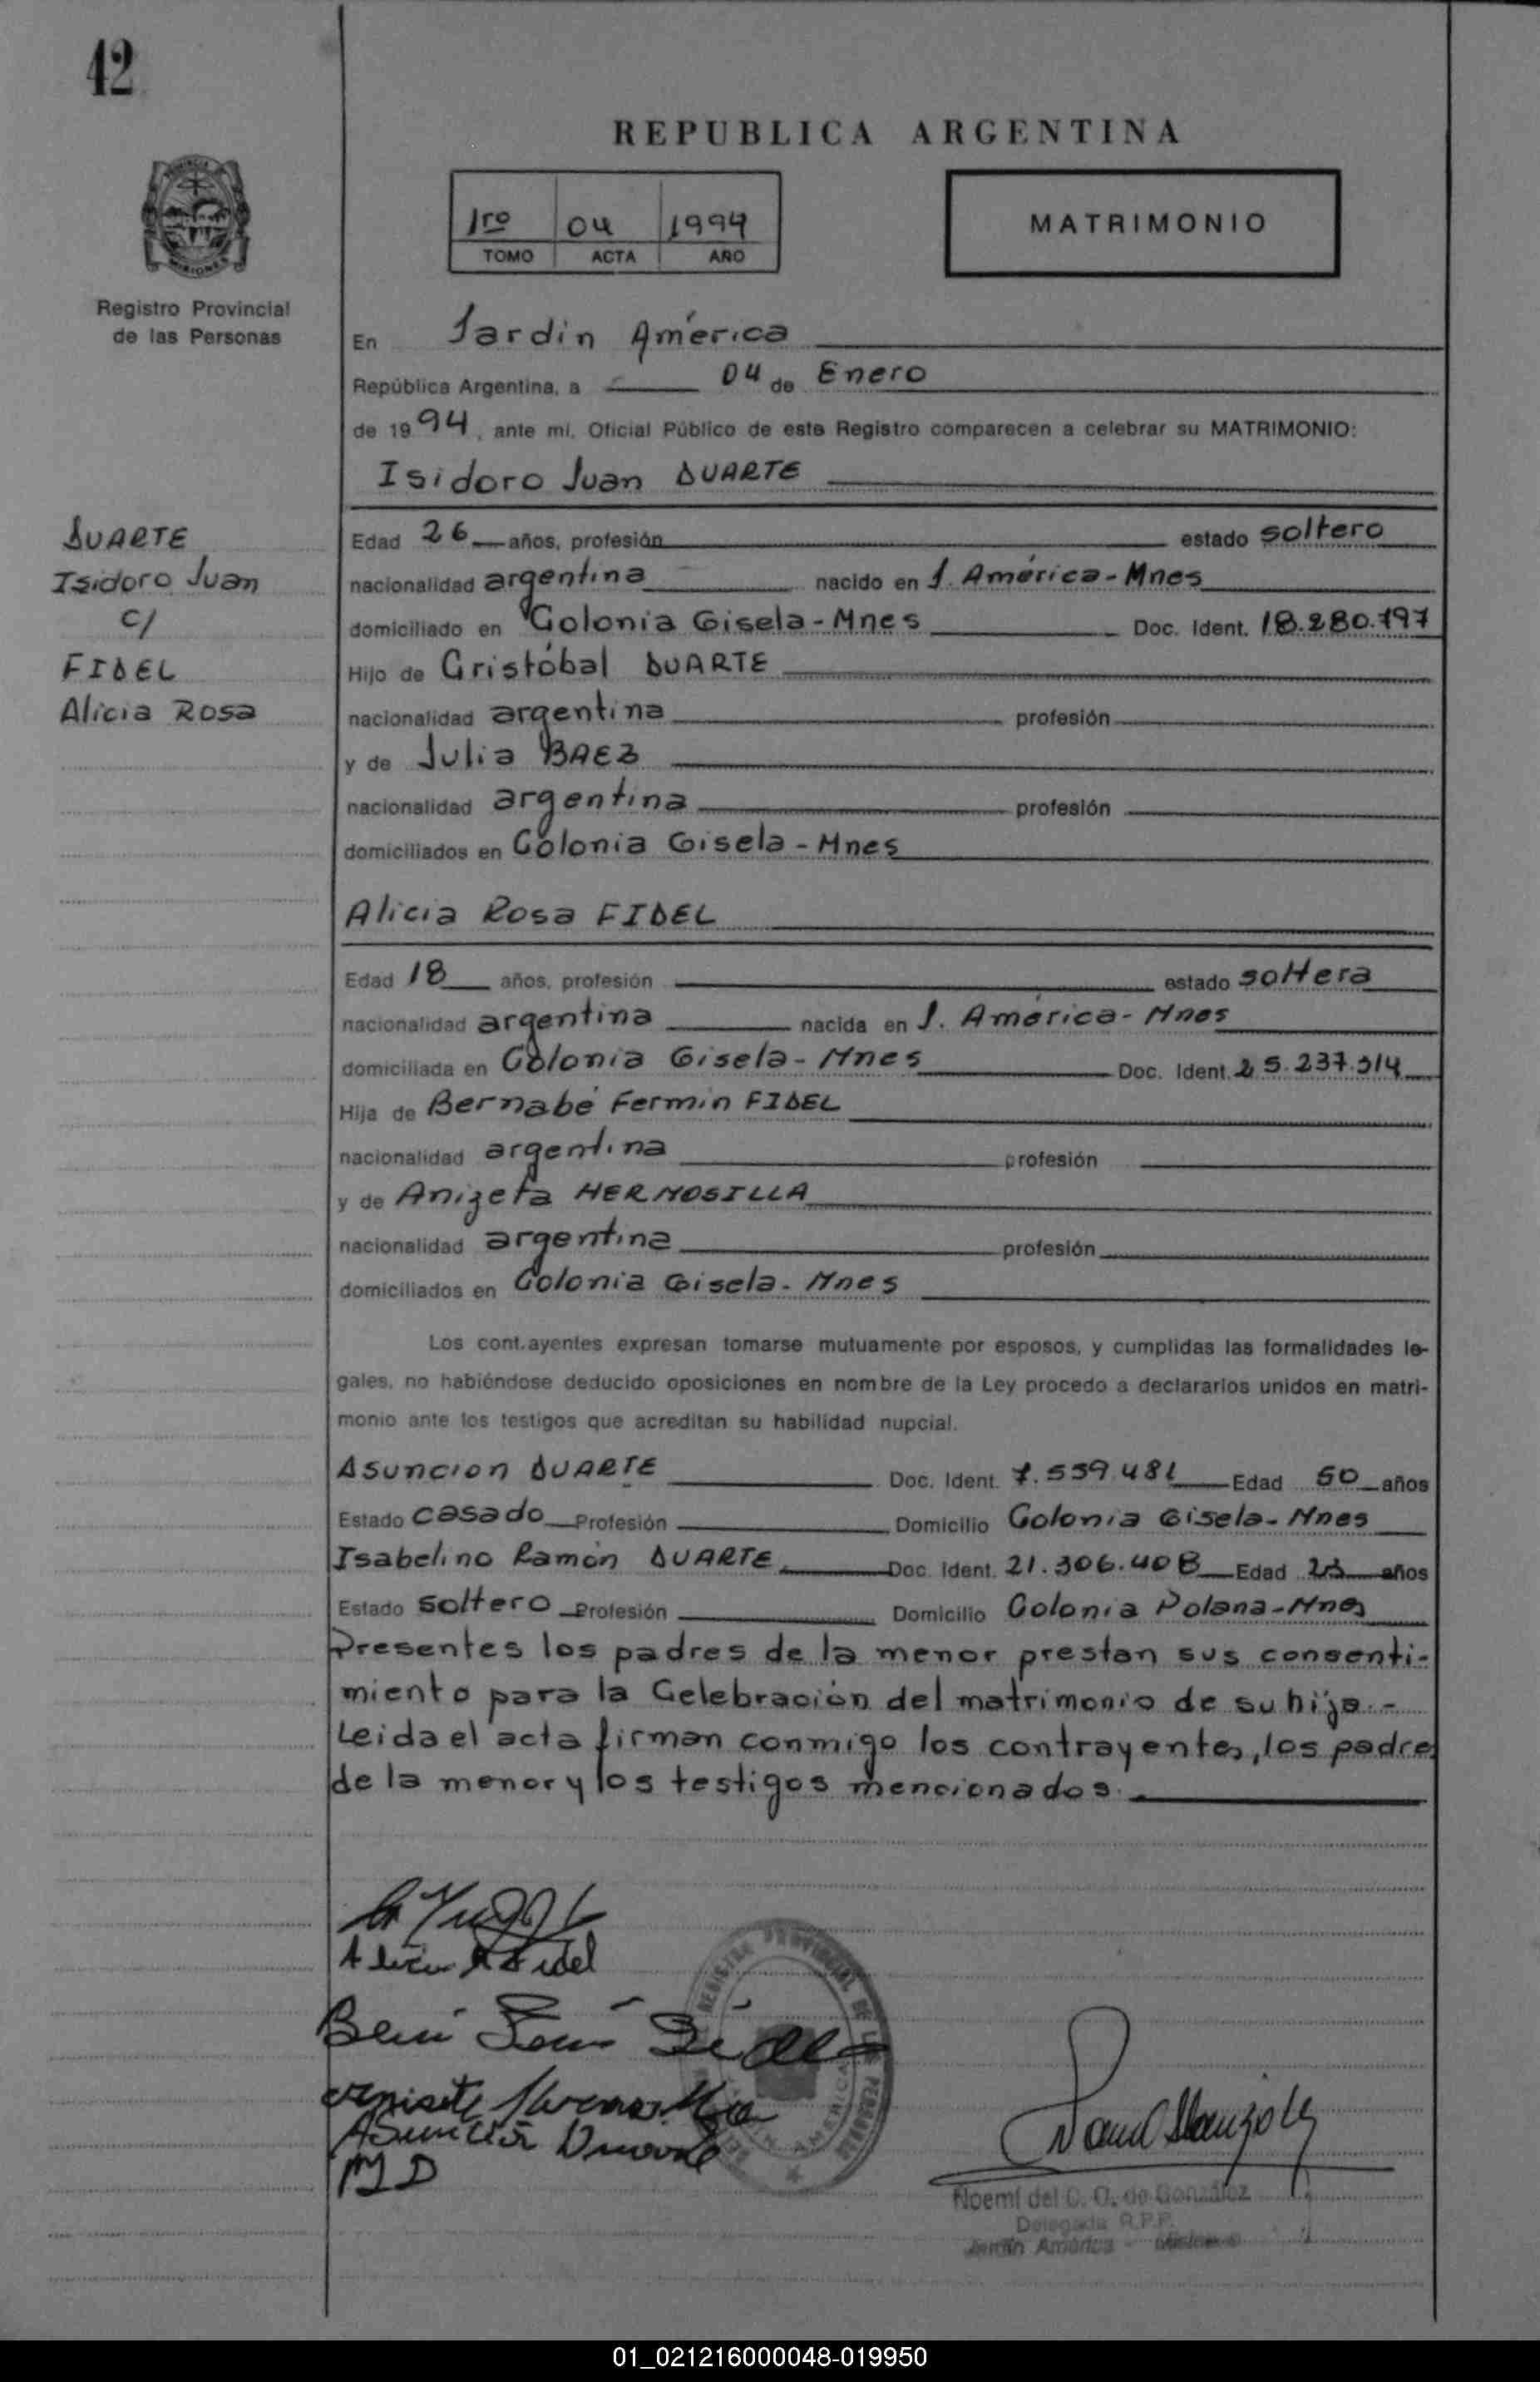 42
REPUBLICA ARGENTINA
1ro 04 1994
TOMO ACTA AÑO
MATRIMONIO
Registro Provincial
de las Personas
En Jardin América
República Argentina, a 04 de Enero
de 1994, ante mí, Oficial Público de este Registro comparecen a celebrar su MATRIMONIO:
Isidoro Juan DUARTE
DUARTE
Isidoro Juan
c/
FIDEL
Alicia Rosa
Edad 26 años, profesión estado soltero
nacionalidad argentina nacido en J. América - Mnes
domiciliado en Colonia Gisela - Mnes Doc. Ident. 18.280.797
Hijo de Cristóbal DUARTE
nacionalidad argentina profesión
y de Julia BAEZ
nacionalidad argentina profesión
domiciliados en Colonia Gisela - Mnes
Alicia Rosa FIDEL
Edad 18 años, profesión estado soltera
nacionalidad argentina nacida en J. América - Mnes
domiciliada en Colonia Gisela - Mnes Doc. Ident. 25.237.514
Hija de Bernabé Fermin FIDEL
nacionalidad argentina profesión
y de Anizeta HERMOSILLA
nacionalidad argentina profesión
domiciliados en Colonia Gisela - Mnes
Los cont.ayentes expresan tomarse mutuamente por esposos, y cumplidas las formalidades le-
gales, no habiéndose deducido oposiciones en nombre de la Ley procedo a declararlos unidos en matri-
monio ante los testigos que acreditan su habilidad nupcial.
Asuncion DUARTE Doc. Ident. 7.559.481 Edad 50 años
Estado casado Profesión Domicilio Colonia Gisela - Mnes
Isabelino Ramón DUARTE Doc. Ident. 21.306.408 Edad 23 años
Estado soltero Profesión Domicilio Colonia Polana - Mnes
Presentes los padres de la menor prestan sus consenti-
miento para la Celebración del matrimonio de su hija.-
Leida el acta firman conmigo los contrayentes, los padres
de la menor y los testigos mencionados.
Alicia R Fidel
Fidel
Asunción Duarte
REGISTRO PROVINCIAL DE LAS PERSONAS
AMERICA
Noemí del C. O. de González
Delegada R.P.P.
Jardín América - Misiones
01_021216000048-019950